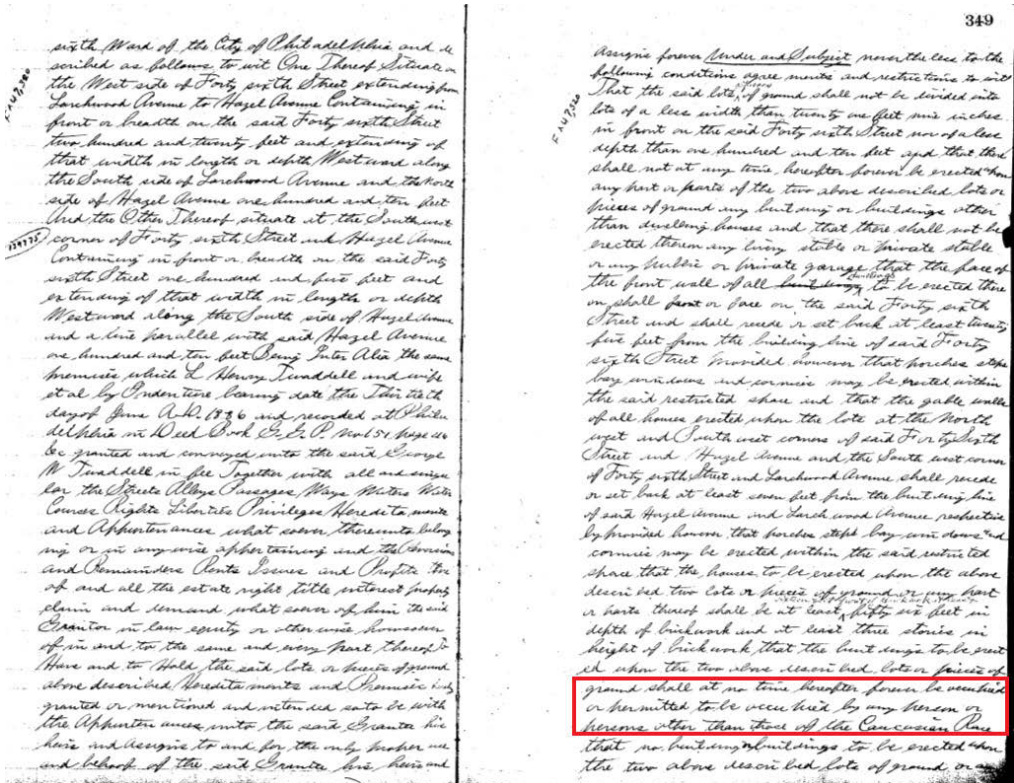 sixth Ward of the City of Philadelphia and de
scribed as follows to wit One Thereof Situate on
the West side of Forty sixth Street extending from
Larchwood Avenue to Hazel Avenue Containing in
front or breadth on the said Forty sixth Street
two hundred and twenty feet and extending of
that width in length or depth Westward along
the South side of Larchwood Avenue and the North
side of Hazel Avenue one hundred and ten feet
And the Other Thereof situate at the Southwest
corner of Forty sixth Street and Hazel Avenue
Containing in front or breadth on the said Forty
sixth Street one hundred and five feet and
extending of that width in length or depth
Westward along the South side of Hazel Avenue
and a line parallel with said Hazel Avenue
one hundred and ten feet Being Inter Alia the same
premises which L Henry Twaddell and wife
et al by Indenture bearing date the Thirtieth
day of June A.D. 1886 and recorded at Phila
delphia in Deed Book G.G.P. No 151 page
&c granted and conveyed unto the said George
W Twaddell in fee Together with all and singu
lar the Streets Alleys Passages Ways Waters Water
Courses Rights Liberties Privileges Heredita ments
and Appurtenances what soever thereunto belong
ing or in any wise appertaining and the Reversions
and Remainders Rents Issues and Profits there
of and all the estate right title interest property
claim and demand what soever of him the said
Grantor in law equity or other wise howsoever
of in and to the same and every part thereof To
Have and to Hold the said lots or pieces of ground
above described Heredita ments and Premises hereby
granted or mentioned and intended so to be with
the Appurten ances unto the said Grantee his
heirs and Assigns to and for the only proper use
and behoof of the said Grantee his heirs and
349
assigns forever Under and Subject never the less to the
following conditions agree ments and restrictions to wit
That the said lots or pieces of ground shall not be divided into
lots of a less width than twenty one feet nine inches
in front on the said Forty sixth Street nor of a less
depth than one hundred and ten feet and that there
shall not at any time hereafter forever be erected upon
any part or parts of the two above described lots or
pieces of ground any building or buildings other
than dwelling houses and that there shall not be
erected thereon any livery stable or private stable
or any public or private garage that the face of
the front wall of all buildings dwellings to be erected there
on shall front or face on the said Forty sixth
Street and shall recede or set back at least twenty
five feet from the building line of said Forty
sixth Street Provided however that porches steps
bay windows and cornices may be erected within
the said restricted space and that the gable walls
of all houses erected upon the lots at the North
west and South west corners of said Forty Sixth
Street and Hazel Avenue and the South west corner
of Forty sixth Street and Larchwood Avenue shall recede
or set back at least seven feet from the building line
of said Hazel Avenue and Larch wood Avenue respective
ly provided however that porches steps bay win dows and
cornices may be erected within the said restricted
space that the houses to be erected upon the above
described two lots or pieces of ground or any part
or parts thereof shall be at least fifty six feet in
depth of brickwork and at least three stories in
height of brickwork, that the buildings to be erect
ed upon the two above described lots or pieces of
ground shall at no time hereafter forever be occupied
or permitted to be occupied by any person or
persons other than those of the Caucasian Race
that no building or buildings to be erected upon
the two above described lots of ground or any